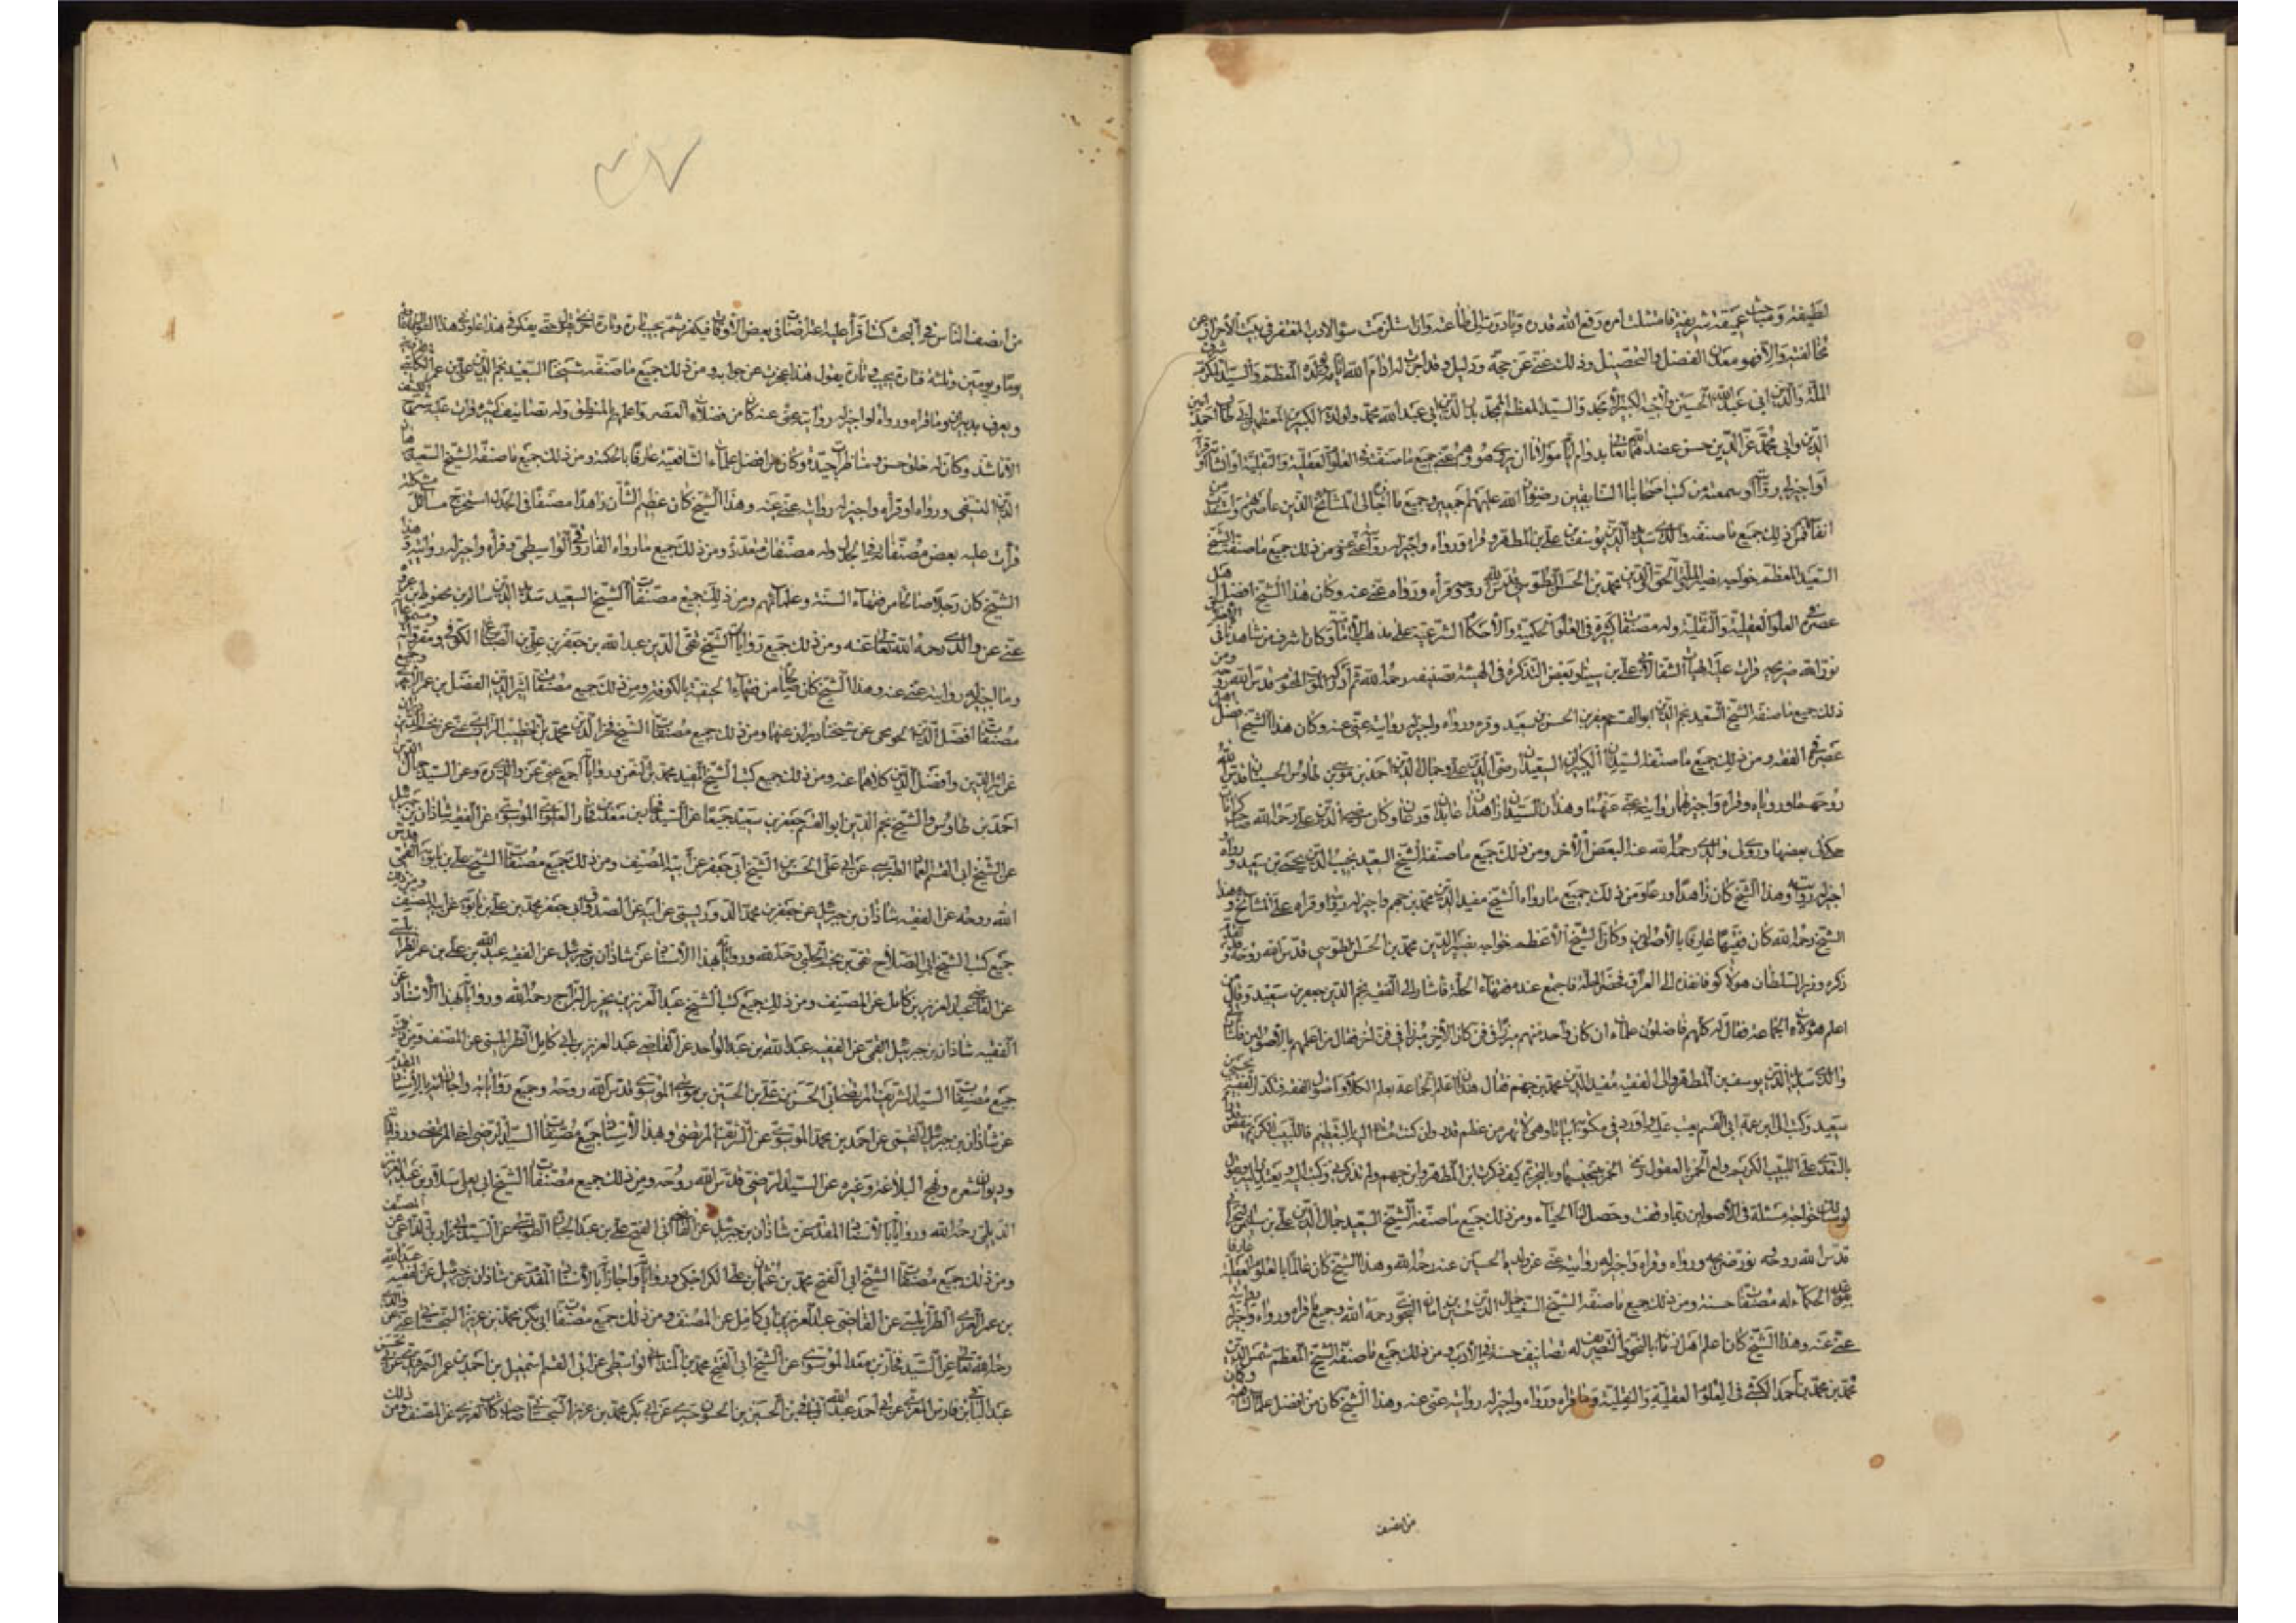 لطيفة ومباحث عميقة شريفة فامتثلت امره رفع الله قدره وبادرت الى طاعته وان استلزمت سوء الادب المغتفر في جنب الاحتراز عن
مخالفته والا فهو معدن الفضل والتحصيل وذلك غنى عن حجة ودليل وقد اجزت له ادام الله ايامه ولولده المعظم والسيد المكرم شرف
الملة والدين ابي عبد الله الحسين ولاخيه الكبير الامجد والسيد المعظم الممجد بدر الدين ابي عبد الله محمد ولولده الكبير المعظم ابي طالب احمد امين
الدين وابي محمد عز الدين حسن عضدهما الله تعالى بدوام ايام مولانا ان يروي هو وهم عني جميع ما صنفته في العلوم العقلية والنقلية او انشأته او قرأته
او اجيز لي روايته او سمعته من كتب اصحابنا السابقين رضوان الله عليهم اجمعين وجميع ما اجازه لي المشائخ الذين عاصرتهم واستفدت من
انفاسهم فمن ذلك جميع ما صنفه والدي سديد الدين يوسف بن علي بن المطهر وقرأه ورواه واجيز له روايته عني عنه ومن ذلك جميع ما صنفه الشيخ
السعيد المعظم خواجه نصير الملة والحق والدين محمد بن الحسن الطوسي قدس الله روحه وقرأه ورواه عني عنه وكان هذا الشيخ افضل اهل
عصره في العلوم العقلية والنقلية وله مصنفات كثيرة في العلوم الحكمية والاحكام الشرعية على مذهب الامامية وكان اشرف من شاهدناه في الاخلاق
نور الله ضريحه قرات عليه الهيات الشفا لابي علي بن سينا وبعض التذكرة في الهيئة تصنيفه رحمه الله ثم ادركه الموت المحتوم قدس الله روحه ومن
ذلك جميع ما صنفه الشيخ السعيد نجم الدين ابو القسم جعفر بن الحسن بن سعيد وقرءه ورواه واجيز له روايته عني عنه وكان هذا الشيخ افضل اهل
عصره في الفقه ومن ذلك جميع ما صنفه السيدان الكبيران السعيدان رضي الدين علي وجمال الدين احمد بن موسى بن طاوس الحسنيان قدس الله
روحهما وروياه وقرآه واجيز لهما روايته عني عنهما وهذان السيدان زاهدان عابدان ورعان وكان رضي الدين علي رحمه الله صاحب كرامات
حكى لي بعضها وروى لي والدي رحمة الله عنه البعض الآخر ومن ذلك جميع ما صنفه الشيخ السعيد نجيب الدين يحيى بن سعيد ورواه
اجيز له روايته وهذا الشيخ كان زاهدا ورعا ومن ذلك جميع ما رواه الشيخ مفيد الدين محمد بن جهم واجيز له روايته وقراه على المشائخ وهذا
الشيخ رحمه الله كان فقيها عارفا بالاصولين وكان الشيخ الاعظم خواجه نصير الدين محمد بن الحسن الطوسي قدس الله روحه
وزير السلطان هولاكو فانفذه الى العراق فحضر الحلة فاجتمع عنده فقهاء الحلة فاشار الى الفقيه نجم الدين جعفر بن سعيد وقال من
اعلم هؤلاء الجماعة فقال له كلهم فاضلون علماء ان كان واحد منهم مبرزا في فن كان الآخر مبرزا في فن آخر فقال من اعلمهم بالاصولين فاشار الى
والدي سديد الدين يوسف بن المطهر والى الفقيه مفيد الدين محمد بن جهم فقال هذان اعلم الجماعة بعلم الكلام واصول الفقه فتكدر الفقيه يحيى بن
سعيد وكتب الى ابن عمه ابي القسم يعتب عليه واورد في مكتوبه ابياتا وهي لا تهن من عظيم قدر وان كنت مشارا اليه بالتعظيم فاللبيب الكريم ينقص قدرا
بالتعدي على اللبيب الكريم ولع الخمر بالعقول رمى الخمر بتنجيسها وبالتحريم كيف ذكرت ابن المطهر وابن جهم ولم تذكرني فكتب اليه يعتذر اليه ويقول
لو سالك خواجه مسئلة في الاصولين ربما وقفت وحصل لنا الحياء ومن ذلك جميع ما صنفه الشيخ السعيد جمال الدين علي بن سليمن البحراني
قدس الله روحه نور ضريحه ورواه وقراه واجيز له روايته عني عن ولده الحسين عنه رحمه الله وهذا الشيخ كان عالما بالعلوم العقلية عارفا
بقواعد الحكماء له مصنفات حسنة ومن ذلك جميع ما صنفه الشيخ السعيد جمال الدين حسين بن اياز النحوي رحمه الله وجميع ما قراه ورواه واجيز له روايته
عني عنه وهذا الشيخ كان اعلم اهل زمانه بالنحو والتصريف له تصانيف حسنة في الادب ومن ذلك جميع ما صنفه الشيخ المعظم شمس الدين
محمد بن محمد بن احمد الكشي في العلوم العقلية والنقلية وما قراه ورواه واجيز له روايته عني عنه وهذا الشيخ كان من افضل علماء الشافعية وكان
من انصف
من انصف الناس في البحث كنت اقرأ عليه اعتراضات في بعض الاوقات فيفكر ثم يجيب تارة وتارة اخرى يقول حتى نفكر في هذا عاودني هذا السؤال فاعاوده
يوما ويومين وثلثة فتارة يجيب وتارة يقول هذا عجزت عن جوابه ومن ذلك جميع ما صنفه شيخنا السعيد نجم الدين علي بن عمر الكاتبي القزويني
ويعرف بدبيران وما قراه ورواه او اجيز له روايته عني عنه كان من فضلاء العصر واعلمهم بالمنطق وله تصانيف كثيرة قرات عليه شرح الكشف
الا ما شذ وكان له خلق حسن ومناظرات جيدة وكان من افضل علماء الشافعية عارفا بالحكمة ومن ذلك جميع ما صنفه الشيخ السعيد برهان
الدين النسفي ورواه او قرأه واجيز له روايته عني عنه وهذا الشيخ كان عظيم الشأن زاهدا مصنفا في الجدل استخرج مسائل مشكلة
قرأت عليه بعض مصنفاته في الجدل وله مصنفات متعددة ومن ذلك جميع ما رواه الفاروقي الواسطي وقرأه واجيز له روايته هذا
الشيخ كان رجلا صالحا من فقهاء السنة وعلمائهم ومن ذلك جميع مصنفات الشيخ السعيد سديد الدين سالم بن محفوظ بن عزيزه
عني عن والدي رحمه الله تعالى عنه ومن ذلك جميع روايات الشيخ تقي الدين عبد الله بن جعفر بن علي بن الصباغ الكوفي ومقرواته ومسموعاته
وما اجيز له روايته عني عنه وهذا الشيخ كان صالحا من فقهاء الحنفية بالكوفة ومن ذلك جميع مصنفات اثير الدين الفضل بن عمر الابهري وجميع
مصنفات افضل الدين الخونجي عن شيخنا دبيران عنهما ومن ذلك جميع مصنفات الشيخ فخر الدين محمد بن الخطيب الرازي عني عن نجم الدين دبيران
عن اثير الدين وافضل الدين كلاهما عنه ومن ذلك جميع كتب الشيخ المفيد محمد بن النعمن ورواياته اجمع عني عن والدي ره وعن السيد جمال الدين
احمد بن طاوس والشيخ نجم الدين ابو القسم جعفر بن سعيد جميعا عن السيد فخار بن معد بن فخار العلوي الموسوي عن الفقيه شاذان بن جبرئيل
عن الشيخ ابي القسم العماد الطبري عن ابي علي الحسن بن الشيخ ابي جعفر عن ابيه عن المصنف ومن ذلك جميع مصنفات الشيخ علي بن بابويه القمي قدس
الله روحه عن الفقيه شاذان بن جبرئيل عن جعفر بن محمد الدوريستي عن ابيه عن الصدوق ابي جعفر محمد بن علي بن بابويه عن ابيه المصنف ومن ذلك
جميع كتب الشيخ ابي الصلاح تقي بن نجم الحلبي رحمه الله ورواياته بهذا الاسناد عن شاذان بن جبرئيل عن الفقيه عبد الله بن علي بن عمر الطرابلسي
عن القاضي عبد العزيز بن كامل عن المصنف ومن ذلك جميع كتب الشيخ عبد العزيز بن نحرير البراج رحمه الله ورواياته بهذا الاسناد عن
الفقيه شاذان بن جبرئيل القمي عن الفقيه عبد الله بن عبد الواحد عن القاضي عبد العزيز بن ابي كامل الطرابلسي عن المصنف ومن ذلك
جميع مصنفات السيد الشريف المرتضى ابي الحسن بن علي بن الحسين بن موسى الموسوي قدس الله روحه وجميع رواياته واجازاته بالاسناد المقدم
عن شاذان بن جبرئيل القمي عن احمد بن محمد الموسوي عن الشريف المرتضى وبهذا الاسناد جميع مصنفات السيد الرضي اخو المرتضى ورواياته
وديوان شعره ونهج البلاغة وغيره عن السيد الرضي قدس الله روحه ومن ذلك جميع مصنفات الشيخ ابي يعلى سلار بن عبد العزيز
الديلمي رحمه الله ورواياته بالاسناد المقدم عن شاذان بن جبرئيل عن القاضي ابي الفتح علي بن عبد الجبار الطوسي عن السيد المصنف
ومن ذلك جميع مصنفات الشيخ ابي الفتح محمد بن عثمان بن علي الكراجكي ورواياته واجازاته بالاسناد المقدم عن شاذان بن جبرئيل عن الفقيه عبد الله
بن عمر العمري الطرابلسي عن القاضي عبد العزيز بن ابي كامل عن المصنف ومن ذلك جميع مصنفات ابي بكر محمد بن عزيز السجستاني عني عن والدي
رحمه الله تعالى عن السيد فخار بن معد الموسوي عن الشيخ ابي الفتح محمد بن المندائي الواسطي عن ابي القسم اسمعيل بن احمد بن عمر السمرقندي عن
عبد الباقي بن فارس المقري عن ابي احمد عبد الله بن الحسين بن حسنون عن ابي بكر محمد بن عزيز السجستاني صاحب كتاب العزيزي عن المصنف ومن ذلك